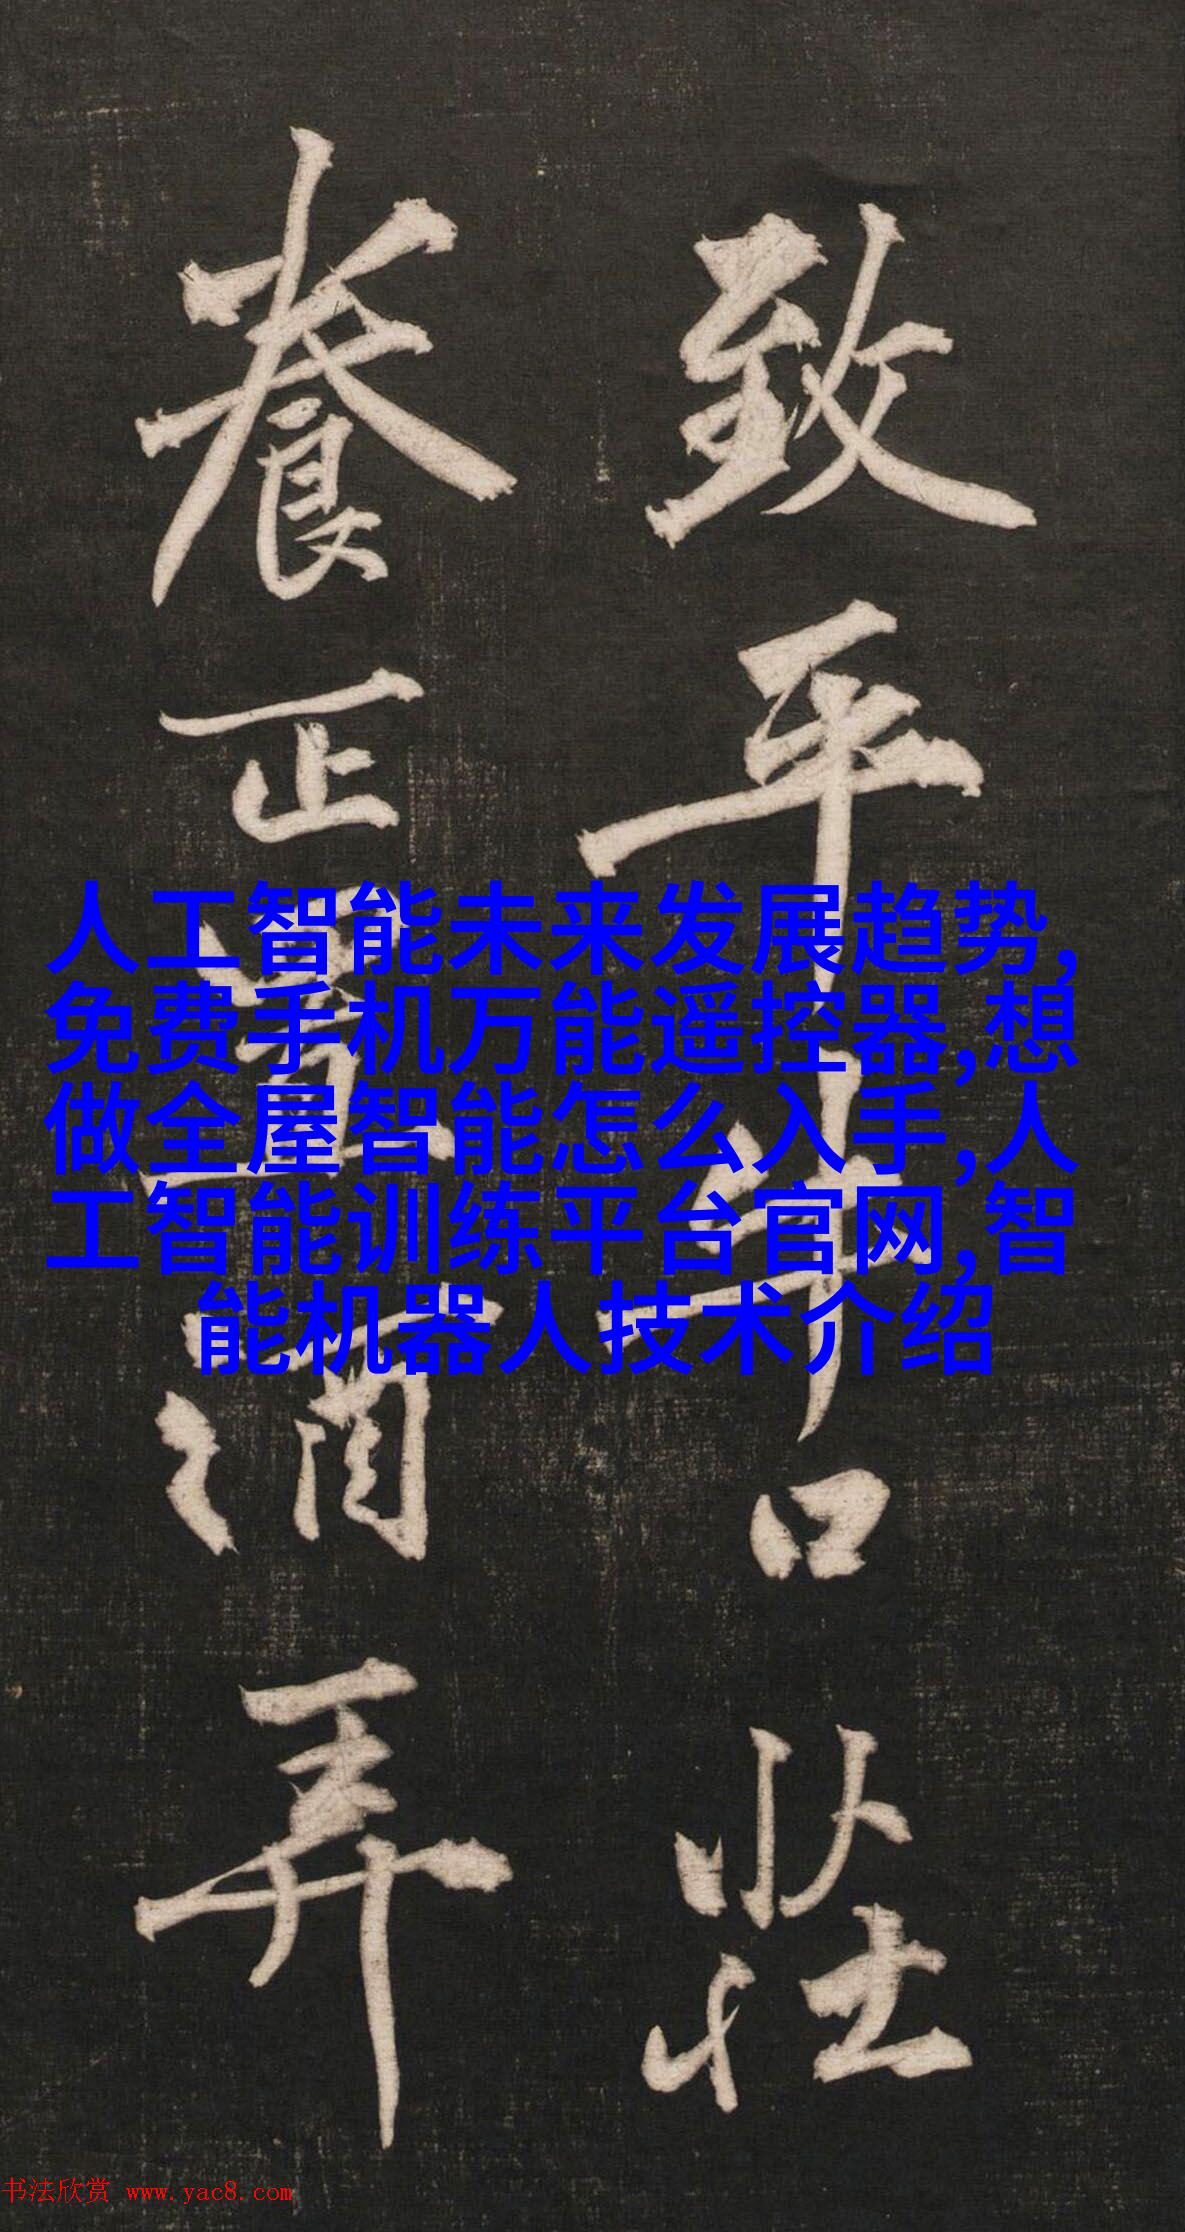 致平牛口莊
養正置酒弄
人工智能未来发展趋势,
免费手机万能遥控器,想
做全屋智能怎么入手,人
工智能训练平台官网,智
能机器人技术介绍
书法欣赏 www.yac8.com